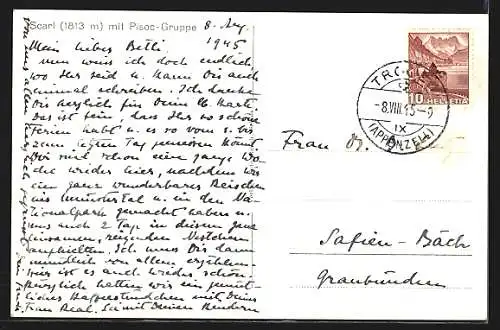 Scarl (1813 m) mit Pisoc-Gruppe
8. Aug.
1945
Mein liebes Betli.
nun weiss ich doch endlich
wo Ihr seid u. kann Dir auch
einmal schreiben. Ich danke
Dir herzlich für Deine lb. Karte.
Das ist fein, dass Ihr so schöne
Ferien habt u. es so vom s. bis
zum letzten Tag geniessen könnt.
Wir sind schon eine ganze Wo
che wieder hier, nachdem wir
ein ganz wunderbares Reischen
ins Münstertal u. in den Na
tionalpark gemacht haben u.
uns auch 2 Tag in diesem ganz
einsamen, reizenden Nestchen
aufhielten. Ich muss Dir dann
mündlich von allem erzählen.
Hier ist es auch wieder schön.
Kürzlich hatten wir ein gemüt
liches Kaffeestündchen mit
Frau Real. Sei mit Deinen Kindern
von uns allen
TROGEN
-8.VIII.45-
IX
(APPENZELL)
10 HELVETIA
Frau Dr.
Safien-Bäch
Graubünden